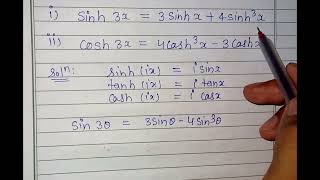 i) Sinh 3x = 3 Sinh x + 4 sinh³x
ii) Cosh 3x = 4 Cosh³x - 3 Cosh x
Solⁿ: sinh (ix) = i sinx
tanh (ix) = i tanx
Cosh (ix) = i Cosx
Sin 3θ = 3Sinθ - 4Sin³θ